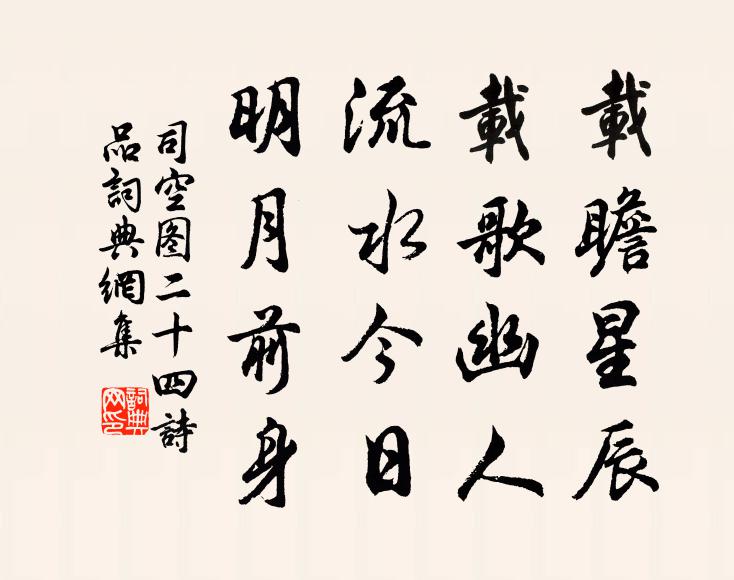 載瞻星辰
載歌幽人
流水今日
明月前身
司空图二十四詩
品詞典網集
詞典
网印